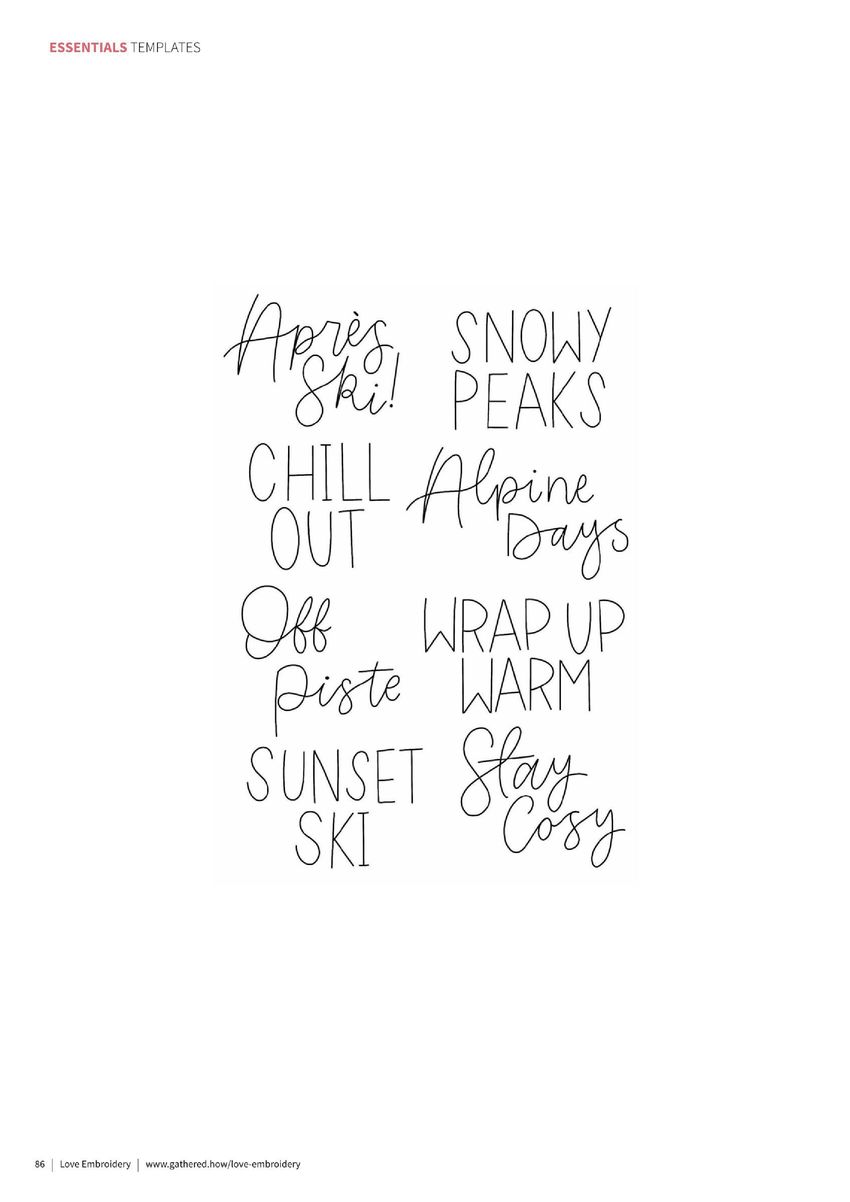 ESSENTIALS TEMPLATES
Après
Ski!
SNOWY
PEAKS
CHILL
OUT
Alpine
Days
Off
Piste
WRAP UP
WARM
SUNSET
SKI
Stay
Cosy
86 | Love Embroidery | www.gathered.how/love-embroidery